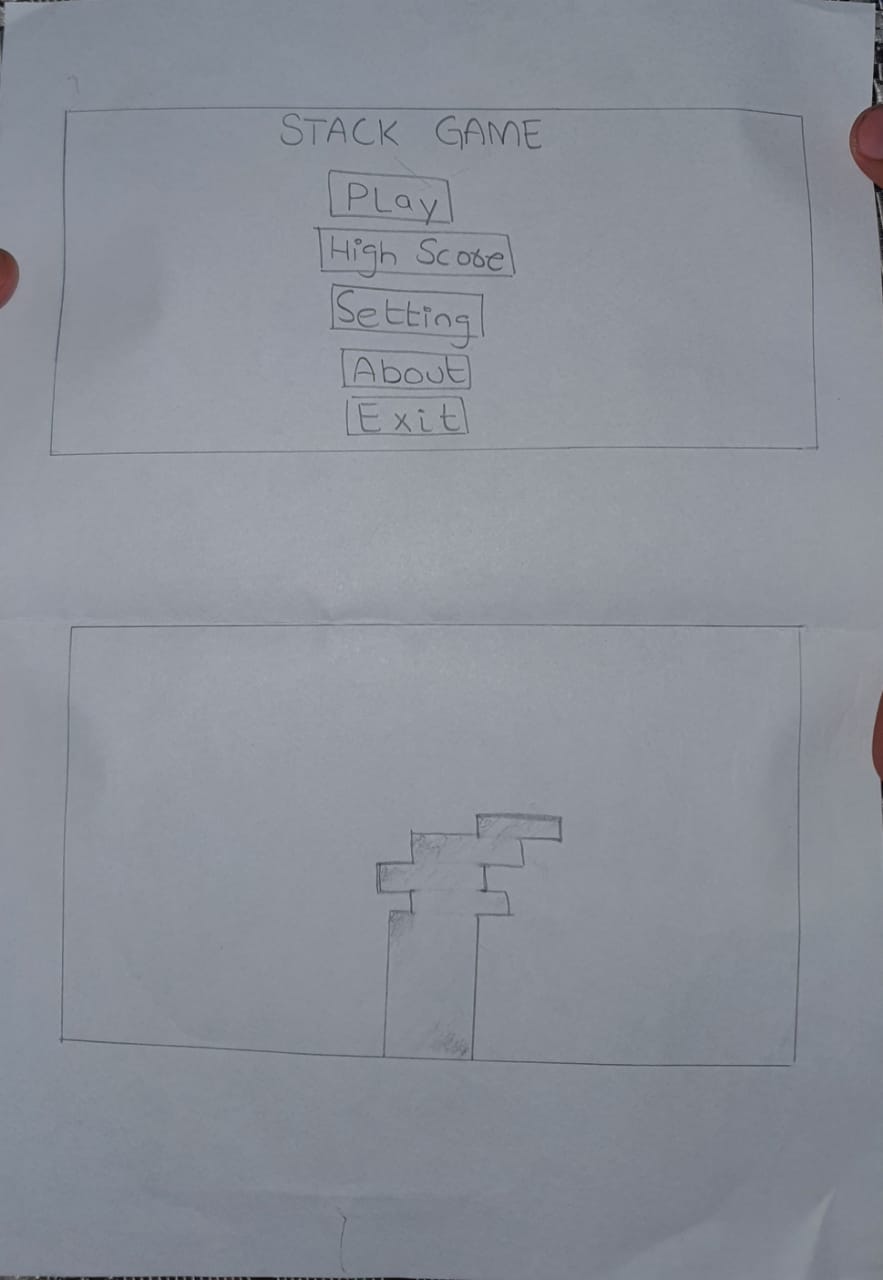 STACK GAME
Play
High Score
Setting
About
Exit